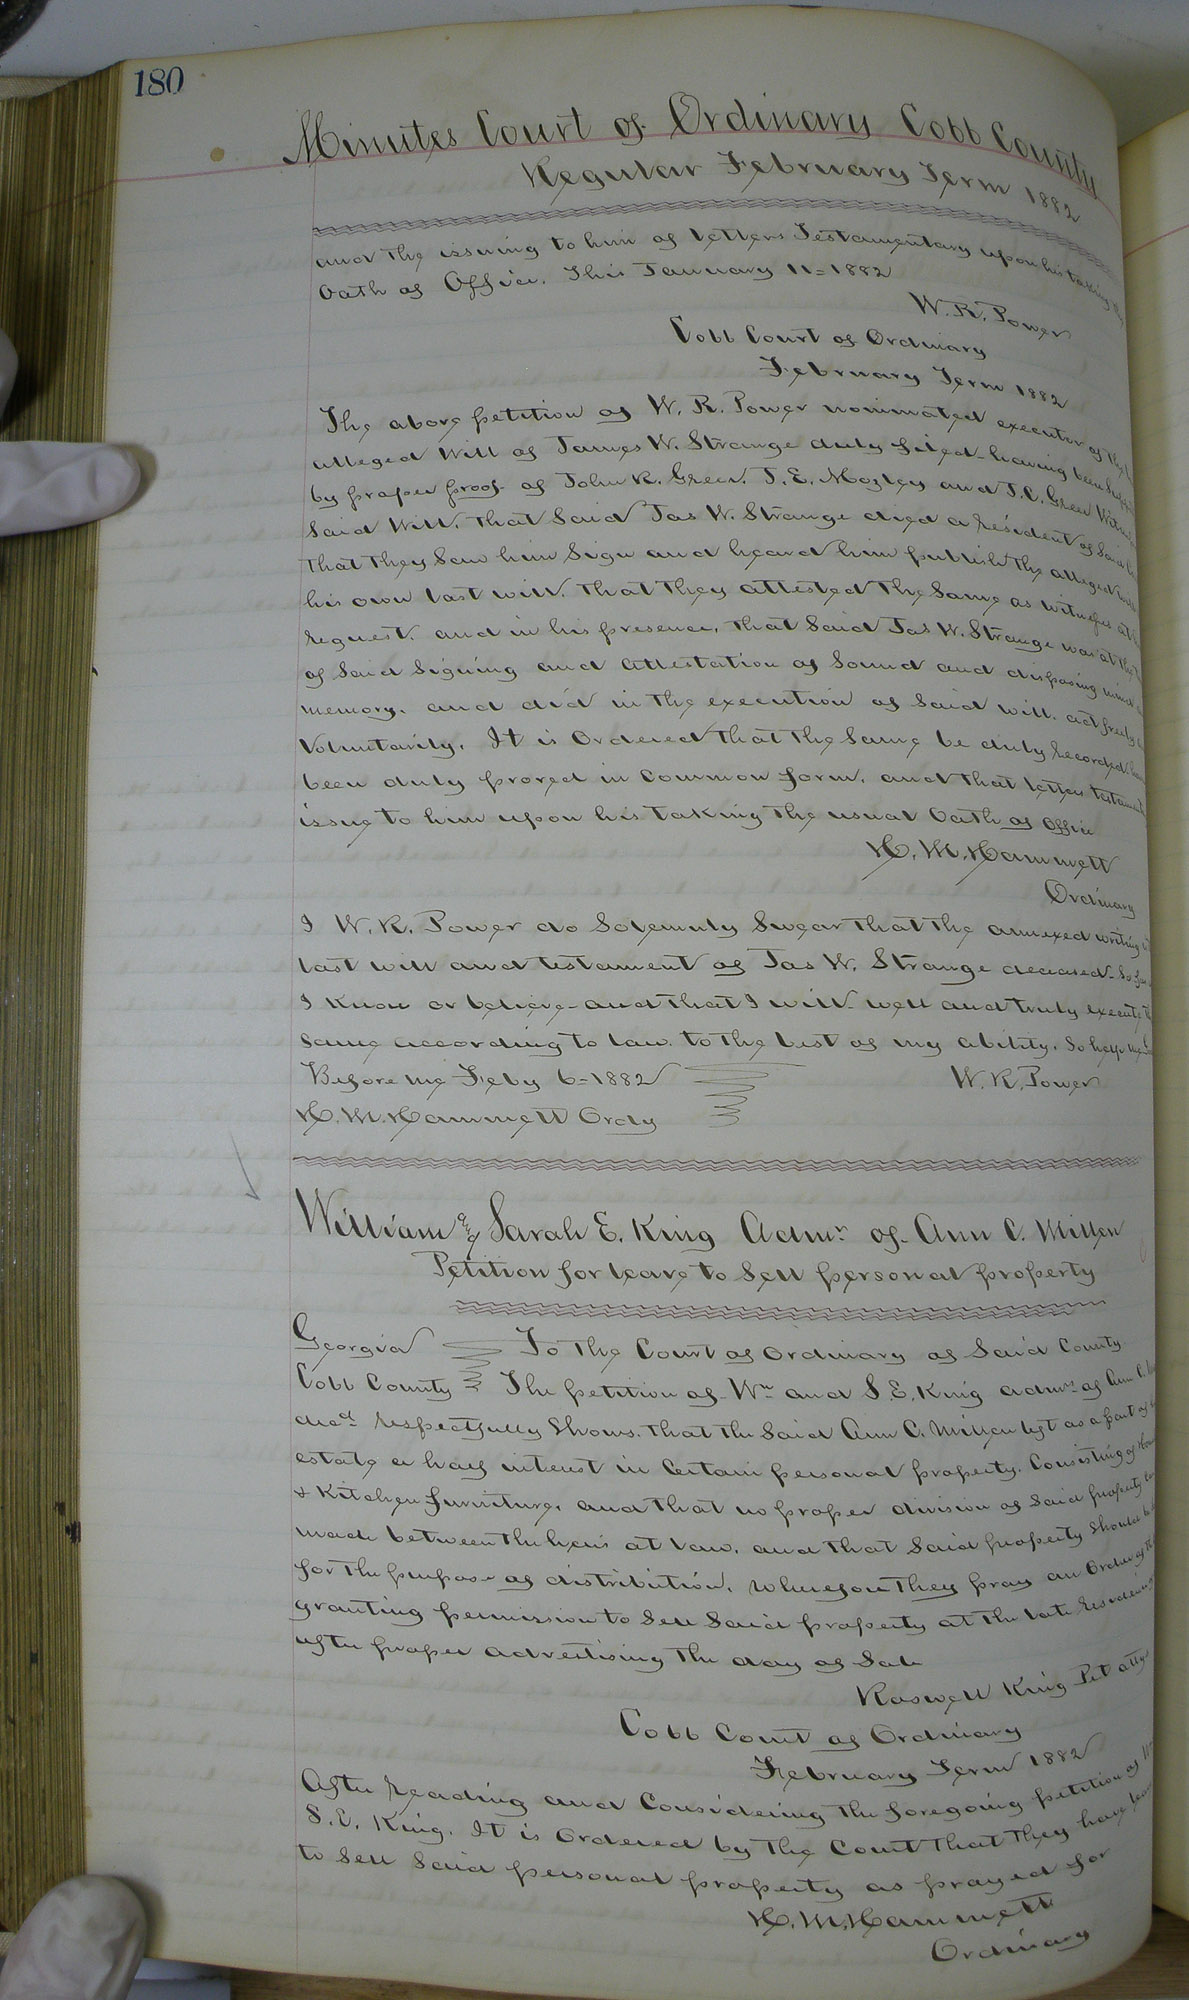 180
Minutes Court of Ordinary Cobb County
Regular February Term 1882
and the issuing to him of Letters Testamentary upon his taking the
Oath of Office. This January 11=1882
W. R. Power
Cobb Court of Ordinary
February Term 1882
The above petition of W. R. Power nominated executor of the
alleged Will of James W. Strange duly filed having been
by proper proof of John R. Green. J. E. Mozley and J. C. Green
Said Will. that Said Jas W. Strange died a resident of Said
that they Saw him Sign and heard him publish the alleged
his own last will. that they attested the Same as witnesses at
request. and in his presence. that Said Jas W. Strange was at the
of Said Signing and attestation of Sound and disposing mind
memory. and did in the execution of Said will. act freely
Voluntarily. It is Ordered that the Same be duly recorded
been duly proved in common form. and that letters
issue to him upon his taking the usual Oath of Office
H. M. Hammett
Ordinary
I W. R. Power do Solemnly Swear that the annexed writing
last will and testament of Jas W. Strange deceased So far
I know or believe and that I will well and truly execute
Same according to law to the best of my ability. So help me
Before me Feby 6=1882 W. R. Power
H. M. Hammett Ordy
William & Sarah E. King Admrs of Ann C. Millen
Petition for leave to Sell personal property
Georgia To the Court of Ordinary of Said County
Cobb County The petition of Wm and S. E. King admrs of Ann C.
decd respectfully Shows. that the Said Ann C. Millen left as a part of
estate a half interest in Certain personal property. Consisting of
& Kitchen furniture. and that no proper division of Said property
made between the heirs at law. and that Said property Should
for the purpose of distribution. wherefore they pray an Order of
granting permission to Sell Said property at the late residence
after proper advertising the day of Sale
Roswell King Pet atty
Cobb Court of Ordinary
February Term 1882
After reading and Considering the foregoing petition of
S. E. King. It is Ordered by the Court that they have
to Sell Said personal property as prayed for
H. M. Hammett
Ordinary